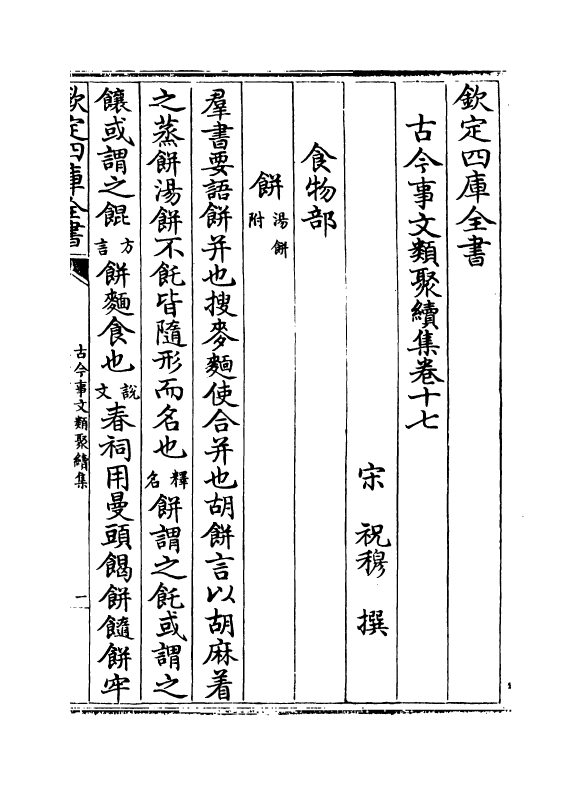 欽定四庫全書
古今事文類聚續集卷十七
宋　祝穆　撰
食物部
餅湯餅附
羣書要語餅并也搜麥麵使合并也胡餅言以胡麻着
之蒸餅湯餅不飥皆隨形而名也釋名餅謂之飥或謂之
餦或謂之餛方言餅麵食也說文春祠用曼頭餲餅䭉餅牢
欽定四庫全書
古今事文類聚續集
一